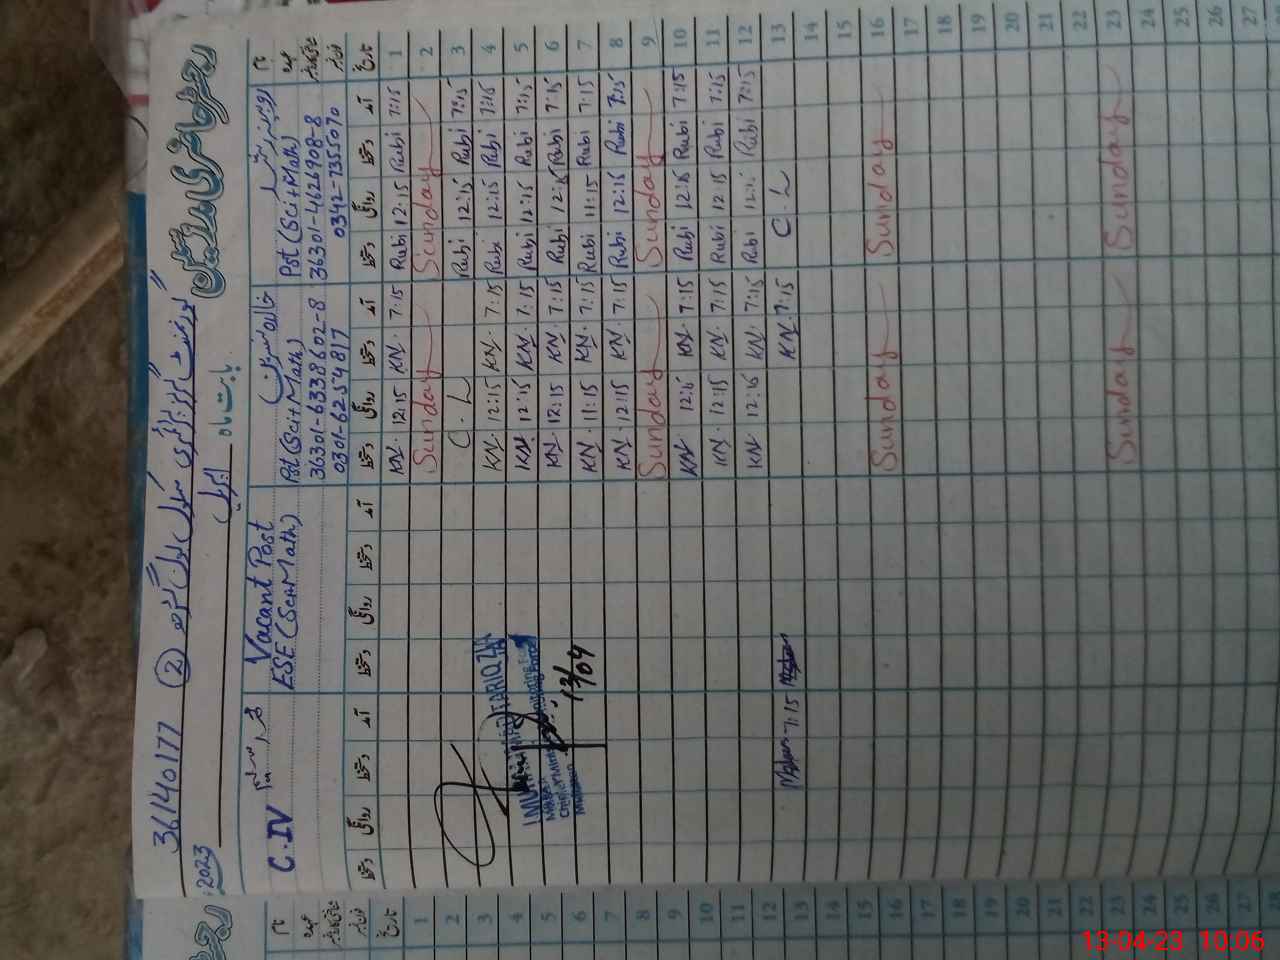 رجسٹر حاضری ملازمین
36140177 (2) گورنمنٹ گرلز پرائمری سکول
2023 اپریل بابت ماہ
نام
عہدہ
شناختی کارڈ نمبر
فون نمبر
Pst (Sci+Math)
36301-4626908-8
0342-7355070
Pst (Sci+Math)
36301-6338602-8
0301-6254817
Vacant Post
ESE (Sci+Math)
C.IV
تاریخ آمد دستخط روانگی دستخط آمد دستخط روانگی دستخط آمد دستخط روانگی دستخط آمد دستخط روانگی دستخط
1 7:15 Rubi 12:15 Rubi 7:15 KN. 12:15 KN.
2 Sunday Sunday
3 7:15 Rubi 12:15 Rubi C.L
4 7:15 Rubi 12:15 Rubi 7:15 KN. 12:15 KN.
5 7:15 Rubi 12:15 Rubi 7:15 KN. 12:15 KN.
6 7:15 Rubi 12:15 Rubi 7:15 KN. 12:15 KN.
7 7:15 Rubi 11:15 Rubi 7:15 KN. 11:15 KN.
8 7:15 Rubi 12:15 Rubi 7:15 KN. 12:15 KN.
9 Sunday Sunday
10 7:15 Rubi 12:15 Rubi 7:15 KN. 12:15 KN.
11 7:15 Rubi 12:15 Rubi 7:15 KN. 12:15 KN.
12 7:15 Rubi 12:15 Rubi 7:15 KN. 12:15 KN.
13 C.L 7:15 KN. 7:15
14
15
16 Sunday Sunday
17
18
19
20
21
22
23 Sunday Sunday
24
25
26
27
MUHAMMAD TARIQ ZIA
13/04
نام
عہدہ
تاریخ
1
2
3
4
5
6
7
8
9
10
11
12
13
14
15
16
17
18
19
20
21
22
23
24
25
26
27
28
13-04-23 10:06